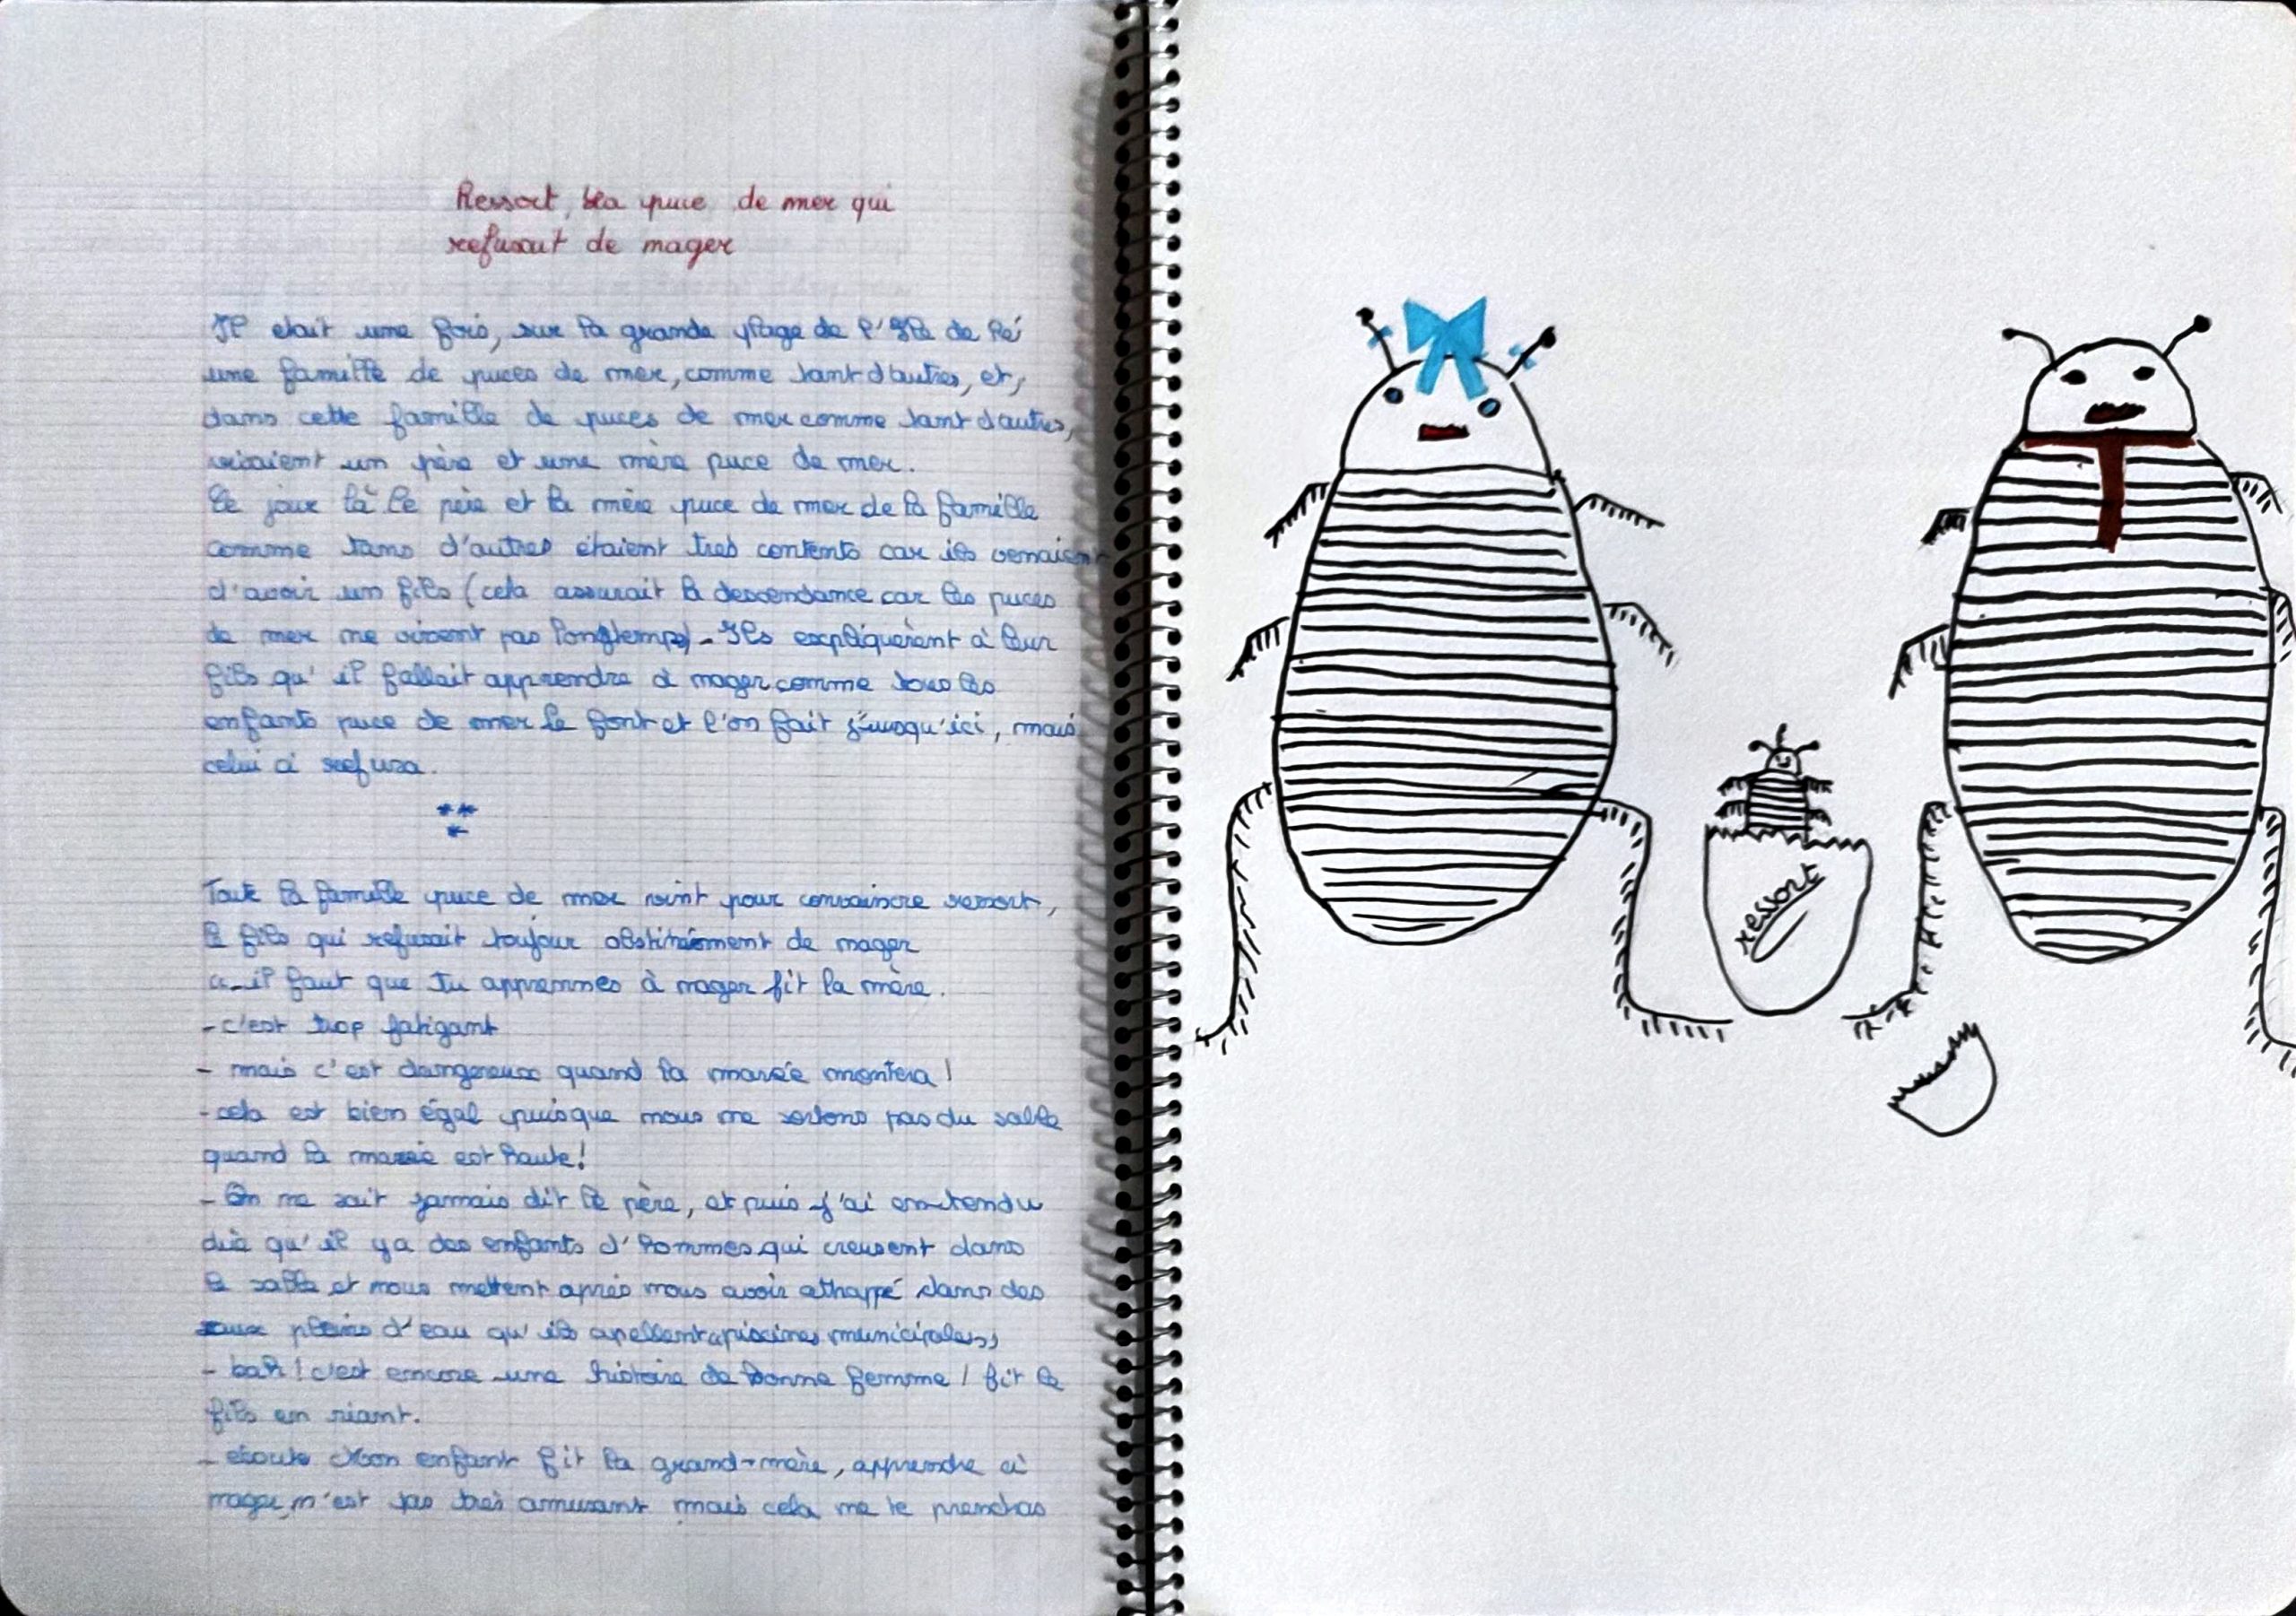 Ressort, la puce de mer qui
refusait de mager
Il etait une fois, sur la grande plage de l'Ile de Ré
une famille de puces de mer, comme tant d'autres, et,
dans cette famille de puces de mer comme tant d'autres,
vivaient un père et une mère puce de mer.
Ce jour là le père et la mère puce de mer de la famille
comme tans d'autres étaient tres contents car ils venaient
d'avoir un fils (cela assurait la descendance car les puces
de mer ne vivent pas longtemps) - Ils expliquèrent à leur
fils qu'il fallait apprendre à mager comme tous les
enfants puce de mer le font et l'on fait jusqu'ici, mais
celui ci refusa.
***
Toute la famille puce de mer vint pour convaincre ressort,
le fils qui refusait toujour obstinément de mager
"- il faut que tu apprennes à mager fit la mère.
- c'est trop fatigant
- mais c'est dangereux quand la marée montera !
- cela est bien égal puisque nous ne sortons pas du sable
quand la marée est haute !
- On ne sait jamais dit le père, et puis j'ai entendu
dire qu'il y a des enfants d'hommes qui creusent dans
le sable et nous mettent après nous avoir atthappé dans des
pleins d'eau qu'ils apellent "piscines municipales"
- bah ! c'est encore une histoire de bonne femme ! fit le
fils en riant.
- ecoute Mon enfant fit la grand-mère, apprendre à
mager n'est pas très amusant mais cela ne te prendras
ressort